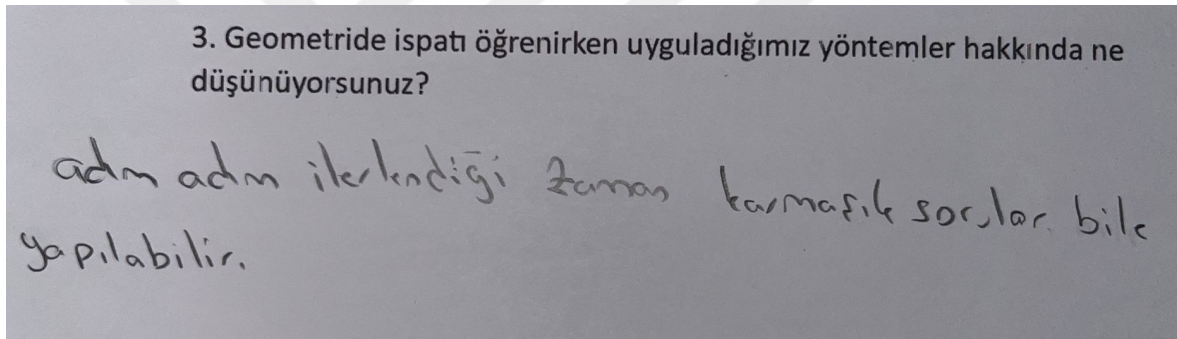 3. Geometride ispatı öğrenirken uyguladığımız yöntemler hakkında ne
düşünüyorsunuz?
adım adım ilerlendiği zaman karmaşık sorular bile
yapılabilir.